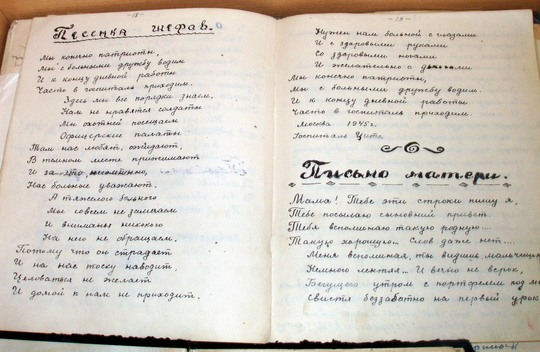 - 18 -
Песенка шефов.
Мы конечно патриоты,
Мы с больными дружбу водим
И к концу дневной работы
Часто в госпиталь приходим.
Здесь мы все порядки знаем,
Нам не нравятся солдаты
Мы охотней посещаем
Офицерские палаты
Там нас любят, ожидают,
В темном месте прижимают
И за это, несомненно,
Нас больные уважают.
А тяжелого больного
Мы совсем не замечаем
И вниманья никакого
На него не обращаем,
Потому что он страдает
И на нас тоску наводит,
Целоваться не желает
И домой к нам не приходит.
- 19 -
Нужен нам больной с глазами
И с здоровыми руками
Со здоровыми ногами
И желательно с деньгами
Мы конечно патриоты,
Мы с больными дружбу водим.
И к концу дневной работы
Часто в госпиталь приходим.
Москва 1945г.
Госпиталь Цито
Письмо матери.
Мама! Тебе эти строки пишу я,
Тебе посылаю сыновний привет.
Тебя вспоминаю такую родную...
Такую хорошую... Слов даже нет....
Меня вспоминая, ты видишь мальчишку
Немного лентяя.. И вечно не в срок,
Бегущего утром с портфелем под мы
Свистя беззаботно на первый урок